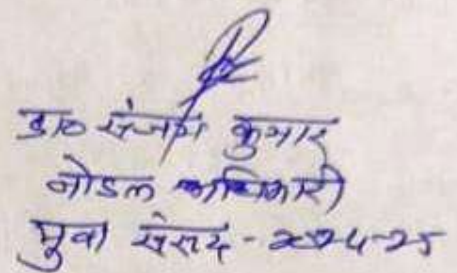 डा० संजय कुमार
नोडल अधिकारी
युवा संसद - 2024-25